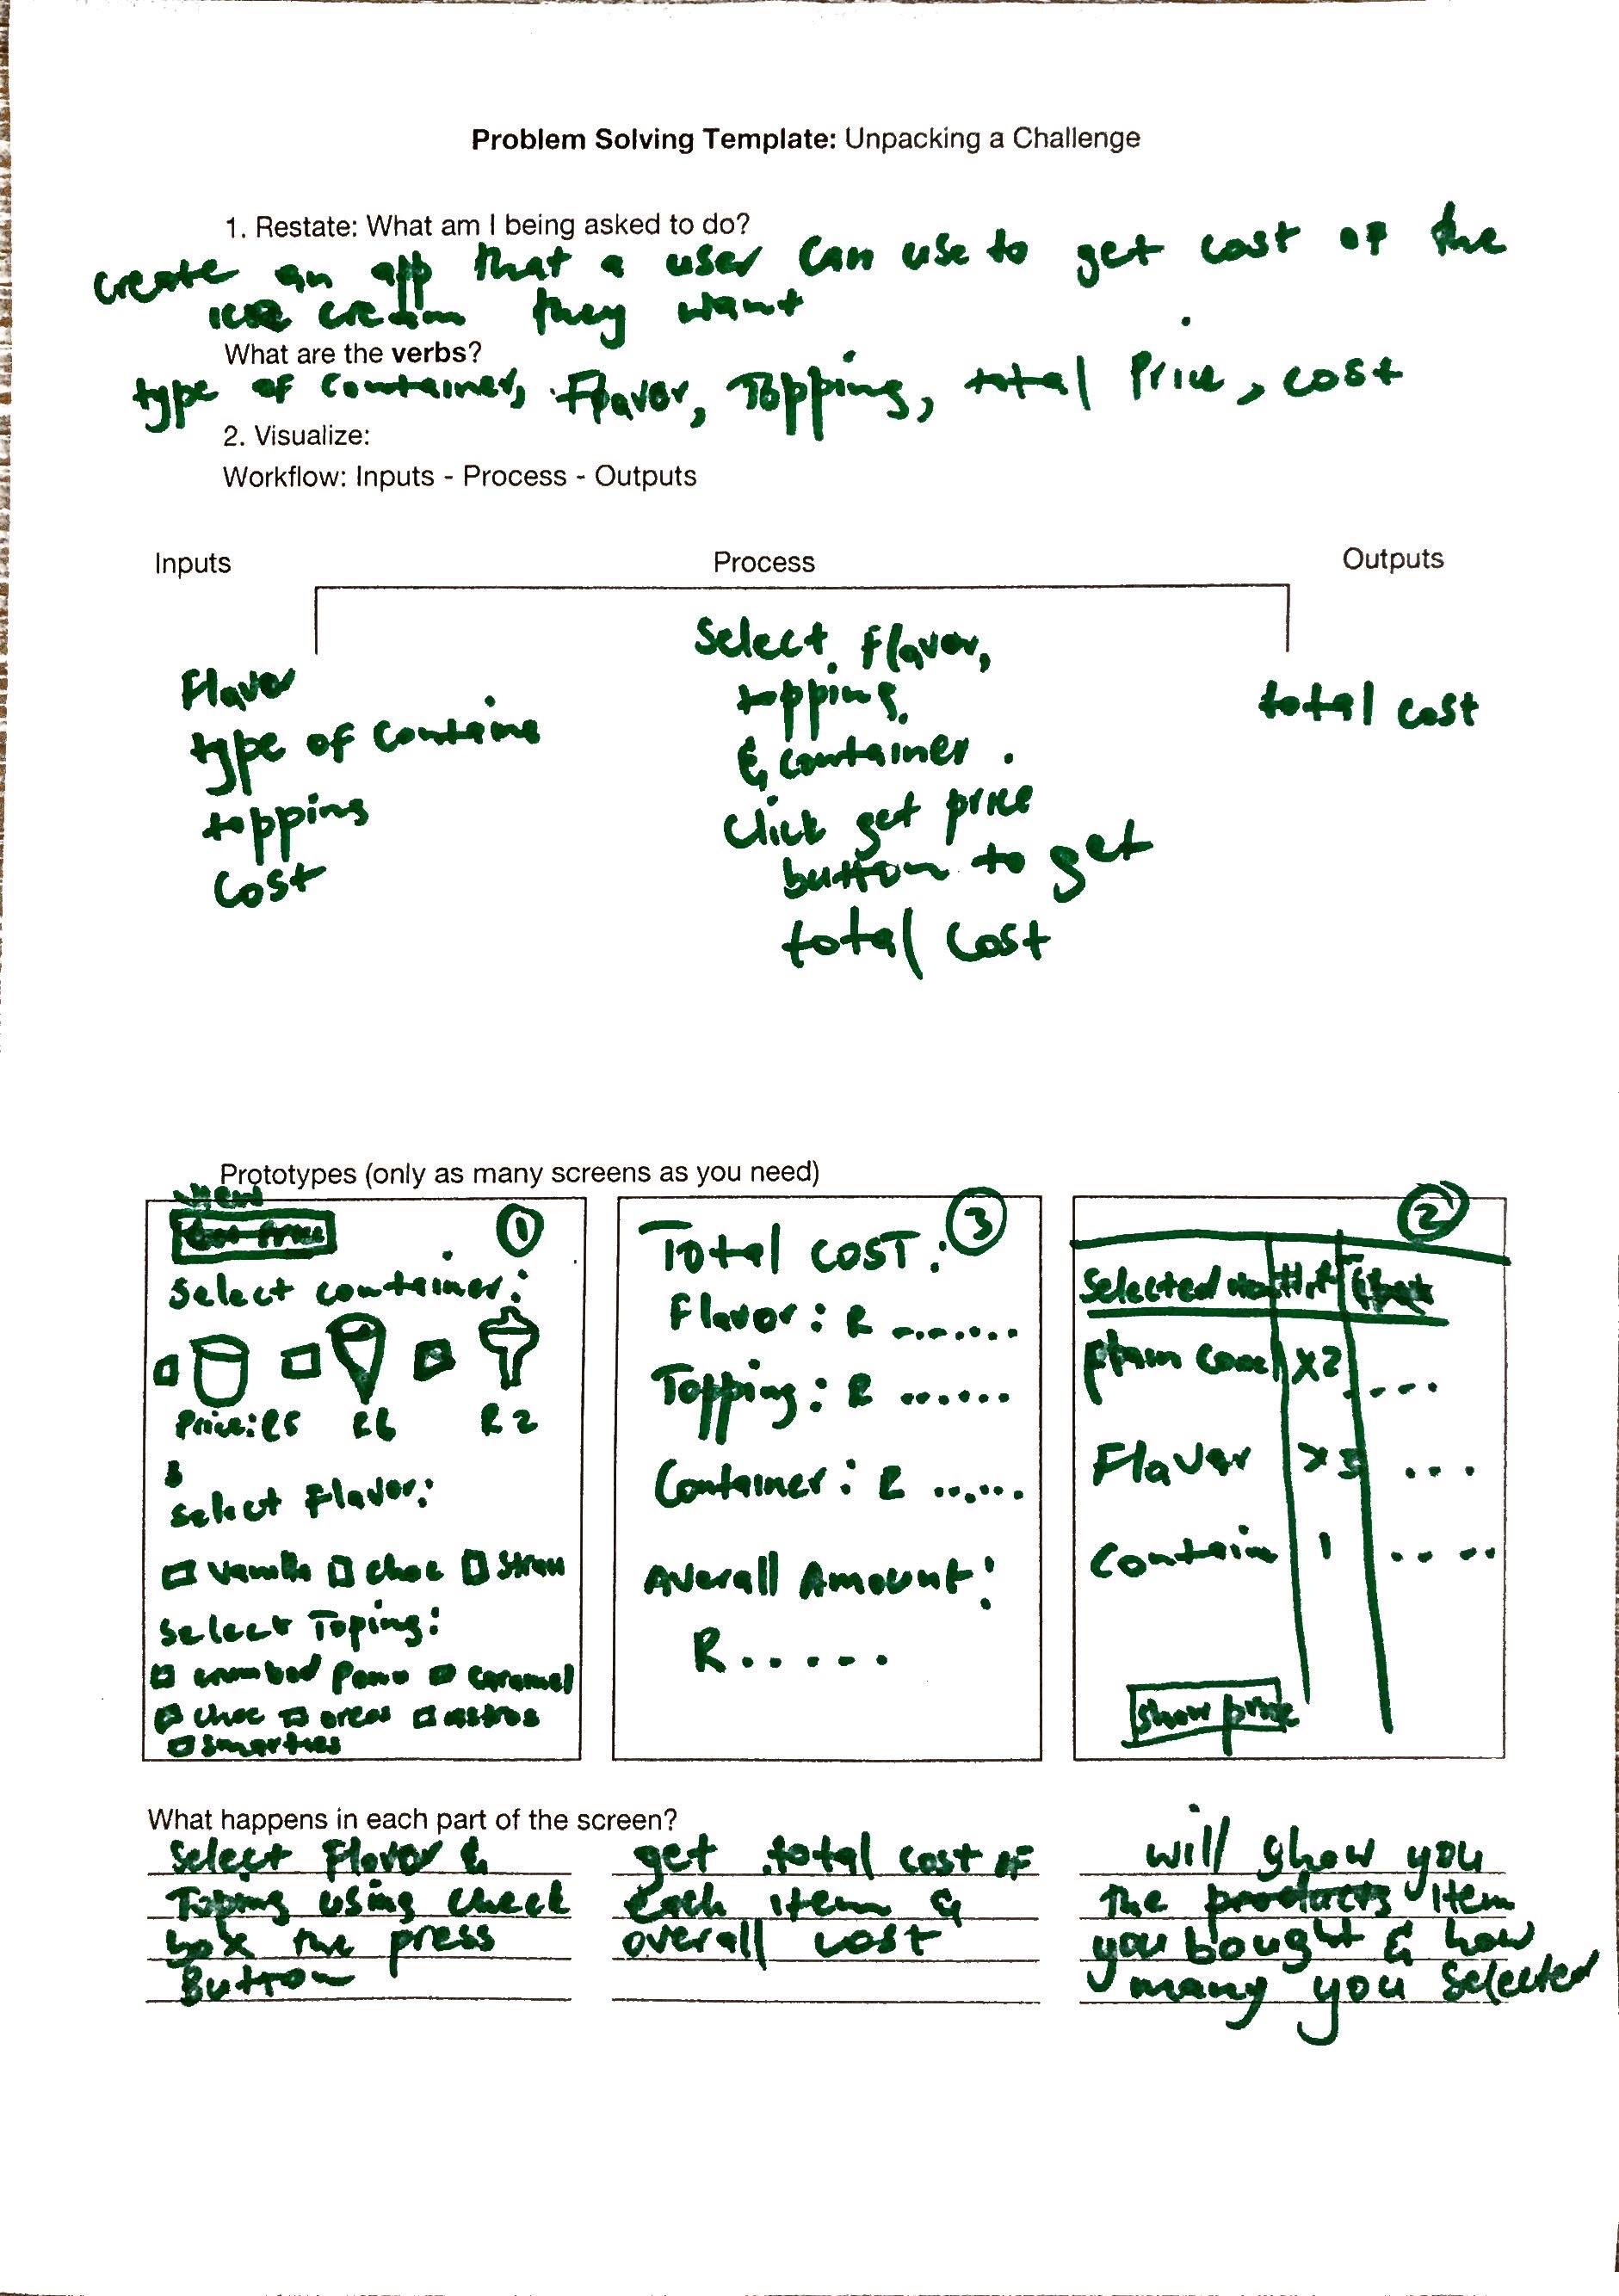 Problem Solving Template: Unpacking a Challenge
1. Restate: What am I being asked to do?
create an app that a user can use to get cost of the
ice cream they want
What are the verbs?
type of container, Flavor, Topping, total Price, cost
2. Visualize:
Workflow: Inputs - Process - Outputs
Inputs
Process
Outputs
Flavor
type of containe
topping
Cost
Select flavor,
topping,
& container.
Click get price
button to get
total cost
total cost
Prototypes (only as many screens as you need)
①
Select container:
Price: R5 R6 R2
Select Flavor:
Vanilla choc Straw
Select Toping:
caramel
choc oreos astros
smarties
③
Total COST:
Flavor: R .......
Topping: R ......
Container: R ......
Averall Amount:
R.....
②
Selected
Plain cone x2 ....
Flavor x3 ...
Contain 1 ....
Show price
What happens in each part of the screen?
Select Flavor &
Toping using check
box the press
Button
get total cost of
each item &
overall cost
will show you
the products item
you bought & how
many you selected